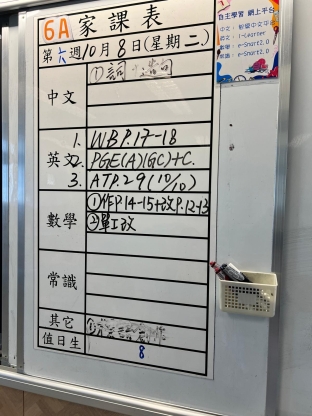 6A 家課表
第六週10月8日(星期二)
中文
① 詞
英文
1. WB P.17-18
2. PGE(A)(GC)+C.
3. ATP.29(10/10)
數學
①作P.14-15+改P.12-13
②單I改
常識
其它
①
值日生
8
自主學習 網上平台
數學 : e-Smart2.0
常識 : e-Smart2.0